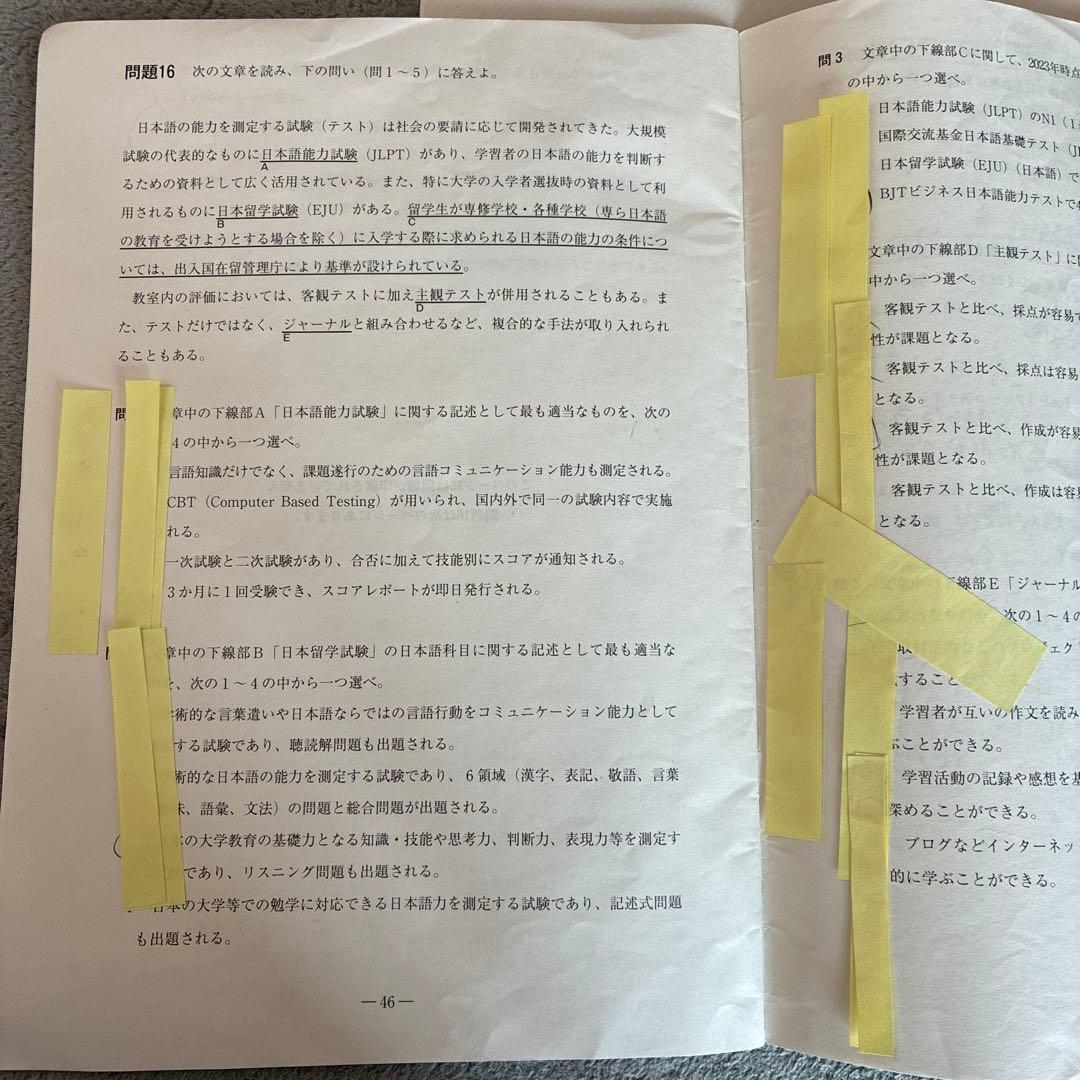 問題16 次の文章を読み、下の問い（問1～5）に答えよ。
日本語の能力を測定する試験（テスト）は社会の要請に応じて開発されてきた。大規模
試験の代表的なものに日本語能力試験（JLPT）があり、学習者の日本語の能力を判断す
A
るための資料として広く活用されている。また、特に大学の入学者選抜時の資料として利
用されるものに日本留学試験（EJU）がある。留学生が専修学校・各種学校（専ら日本語
B C
の教育を受けようとする場合を除く）に入学する際に求められる日本語の能力の条件につ
いては、出入国在留管理庁により基準が設けられている。
教室内の評価においては、客観テストに加え主観テストが併用されることもある。ま
D
た、テストだけではなく、ジャーナルと組み合わせるなど、複合的な手法が取り入れられ
E
ることもある。
問
章中の下線部A「日本語能力試験」に関する記述として最も適当なものを、次の
4の中から一つ選べ。
言語知識だけでなく、課題遂行のための言語コミュニケーション能力も測定される。
CBT（Computer Based Testing）が用いられ、国内外で同一の試験内容で実施
れる。
一次試験と二次試験があり、合否に加えて技能別にスコアが通知される。
3か月に1回受験でき、スコアレポートが即日発行される。
章中の下線部B「日本留学試験」の日本語科目に関する記述として最も適当な
を、次の1～4の中から一つ選べ。
術的な言葉遣いや日本語ならではの言語行動をコミュニケーション能力として
する試験であり、聴読解問題も出題される。
術的な日本語の能力を測定する試験であり、6領域（漢字、表記、敬語、言葉
味、語彙、文法）の問題と総合問題が出題される。
の大学教育の基礎力となる知識・技能や思考力、判断力、表現力等を測定す
であり、リスニング問題も出題される。
日本の大学等での勉学に対応できる日本語力を測定する試験であり、記述式問題
も出題される。
― 46 ―
問3 文章中の下線部Cに関して、2023年時点
の中から一つ選べ。
日本語能力試験（JLPT）のN1（1
国際交流基金日本語基礎テスト（J
日本留学試験（EJU）（日本語）で
BJTビジネス日本語能力テストで4
文章中の下線部D「主観テスト」に
中から一つ選べ。
客観テストと比べ、採点が容易で
性が課題となる。
客観テストと比べ、採点は容易
となる。
客観テストと比べ、作成が容易
性が課題となる。
客観テストと比べ、作成は容易
となる。
線部E「ジャーナル
次の1～4の
ジェクト
すること
学習者が互いの作文を読み
ぶことができる。
学習活動の記録や感想を基
深めることができる。
ブログなどインターネッ
的に学ぶことができる。